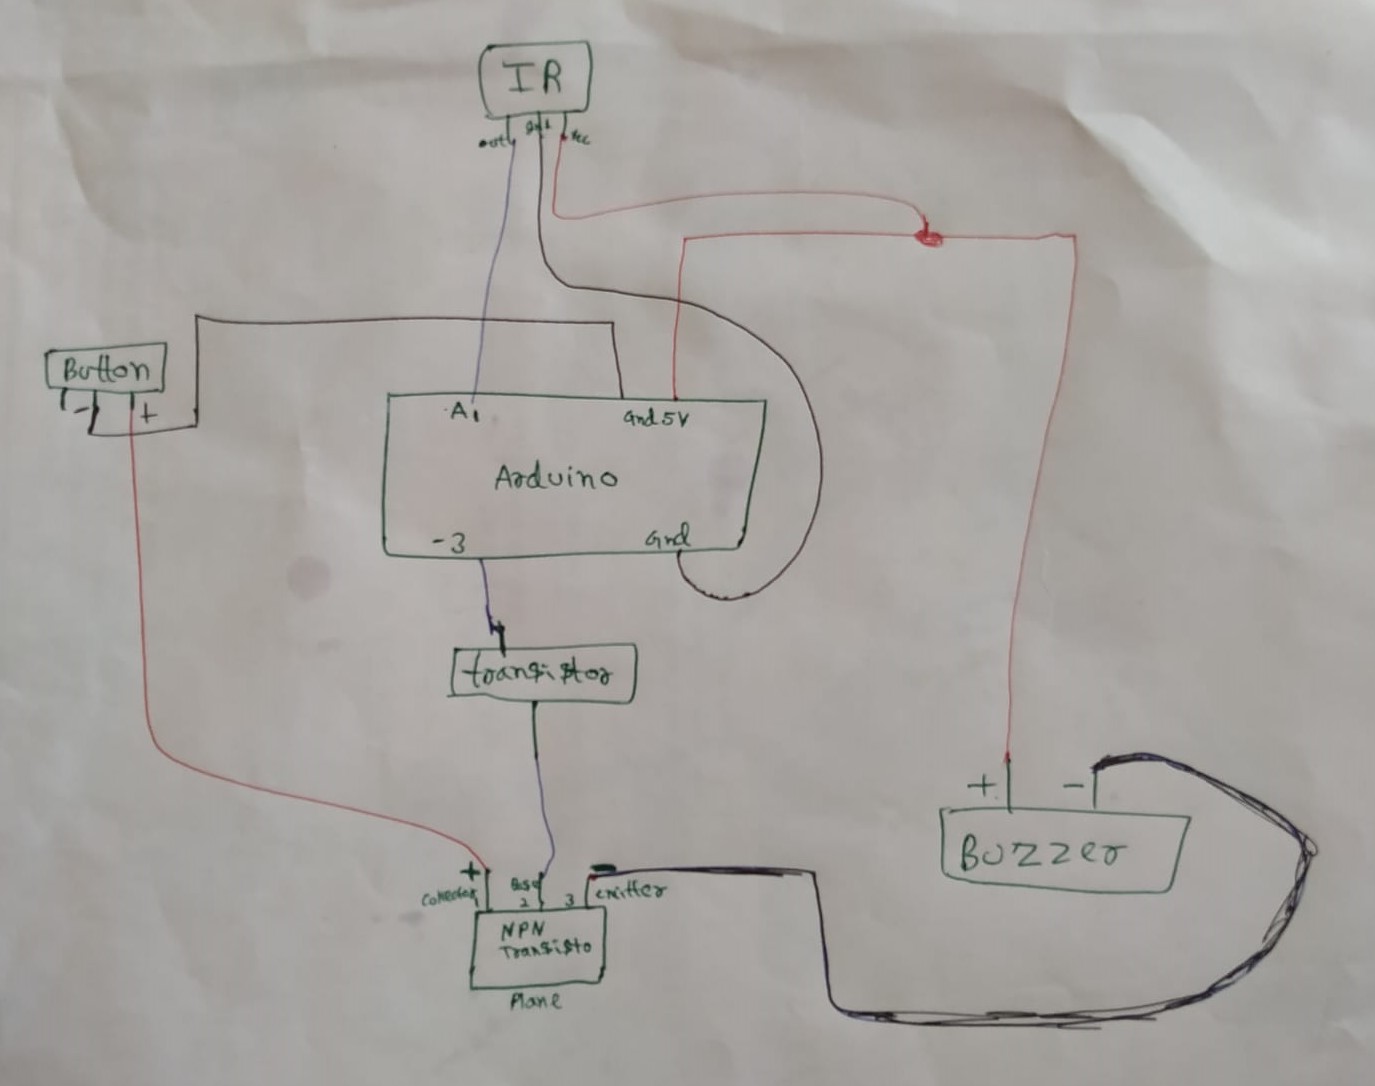 IR
out Gnd Vcc
Button
- +
A1 Gnd 5V
Arduino
-3 Gnd
transistor
+ -
Buzzer
+ -
Collector Base emitter
1 2 3
NPN
Transisto
Plane